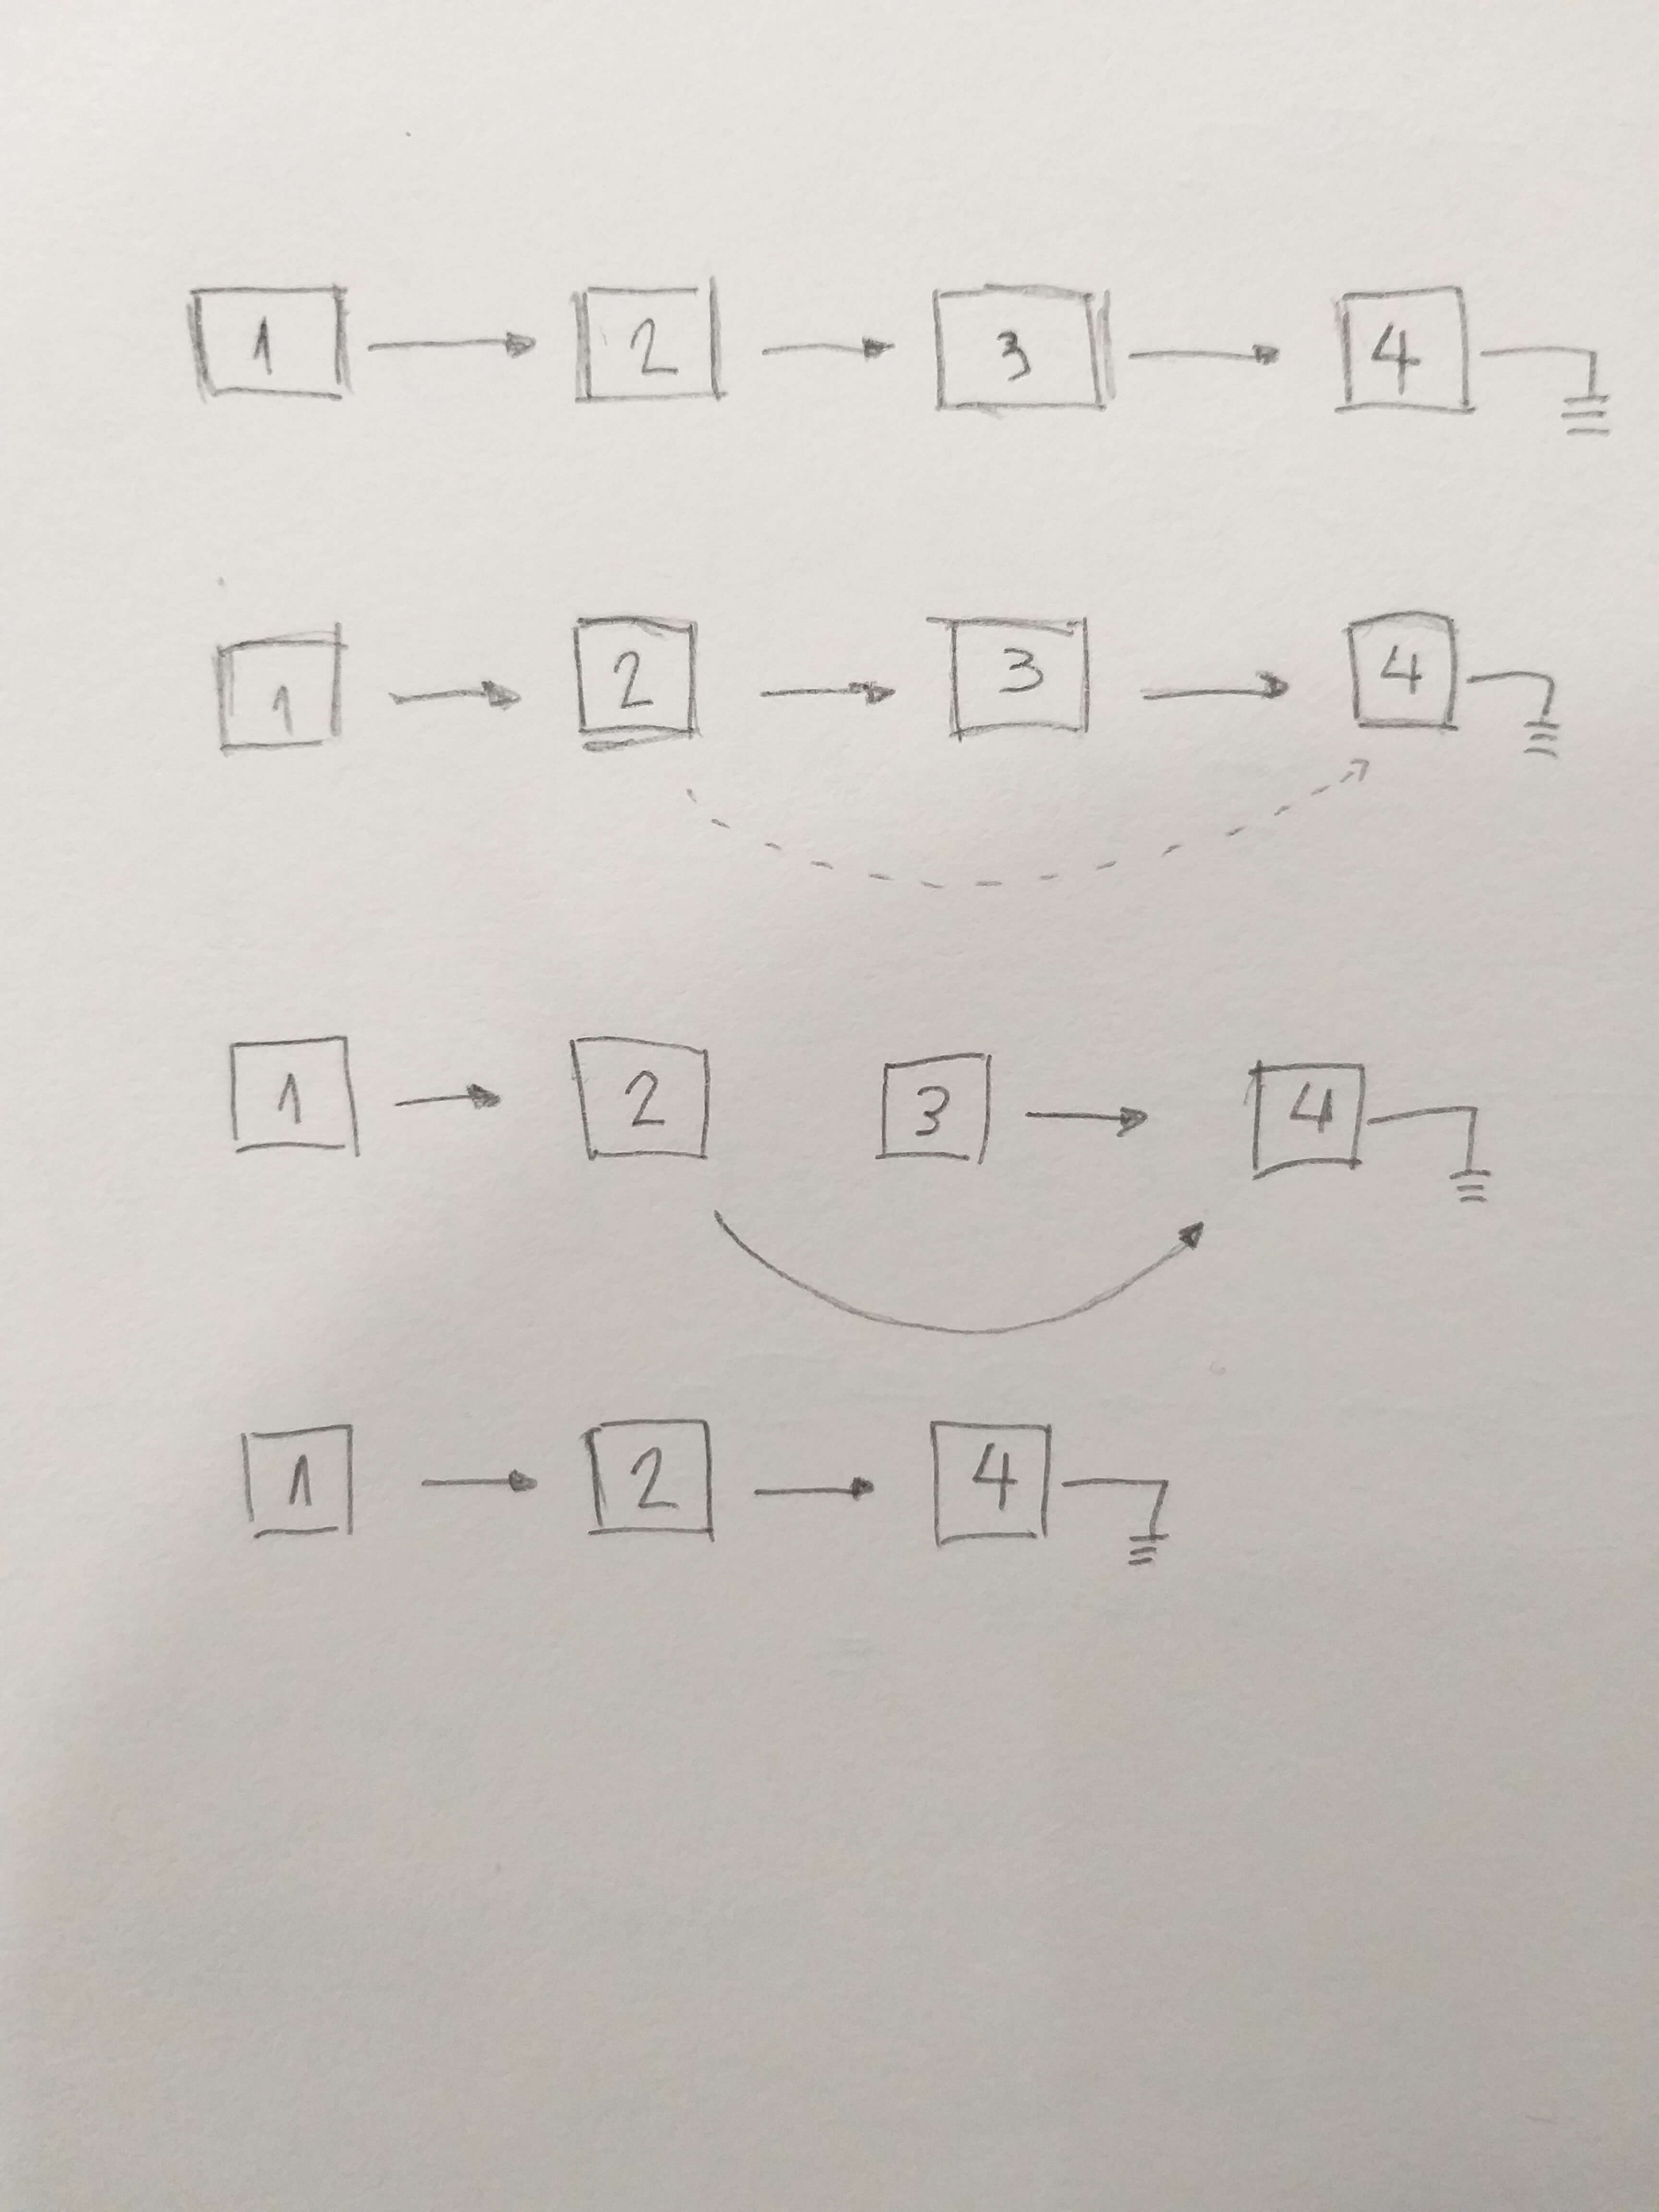 1 2 3 4
1 2 3 4
1 2 3 4
1 2 4